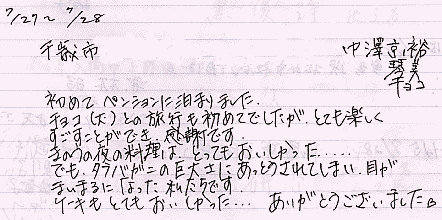 7/27～7/28
千歳市 中澤京裕
琴美
チョコ
初めて ペンションに泊まりました.
チョコ(犬)との旅行も初めてでしたが、とても楽しく
すごすことができ、感謝です.
きのうの夜の料理は、とってもおいしかった......
でも、タラバガニの巨大さにあっとうされてしまい、目が
まんまるになった私たちです.
ケーキもとてもおいしかった... ありがとうございました